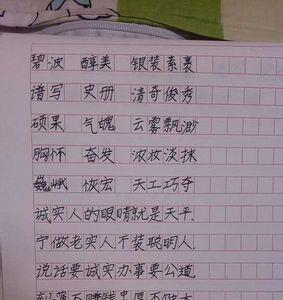 碧波 醇美 银装素裹
谱写 史册 清奇俊秀
硕果 气魄 云雾飘渺
胸怀 奋发 浓妆淡抹
巍峨 恢宏 天工巧夺
诚实人的眼睛就是天平.
宁做老实人,不装聪明人.
说话要诚实办事要公道.